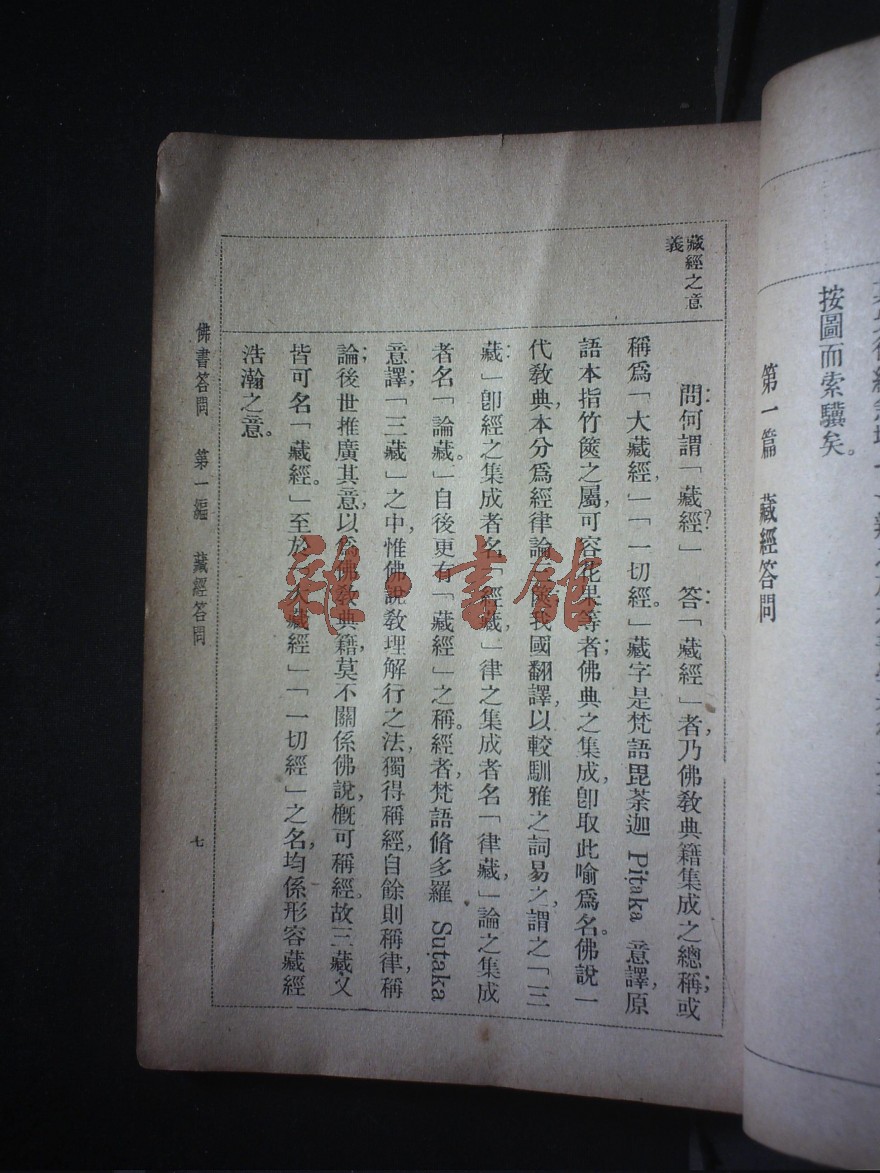 按圖而索驥矣。
第一篇 藏經答問
藏經之意
義
問:何謂「藏經?」 答:「藏經」者,乃佛教典籍集成之總稱;或
稱爲「大藏經,」「一切經。」藏字是梵語毘荼迦 Piṭaka 意譯,原
語本指竹篋之屬,可容花果等者;佛典之集成,卽取此喻爲名。佛說一
代教典,本分爲經律論三篋,我國翻譯,以較馴雅之詞易之,謂之「三
藏:」卽經之集成者名「經藏,」律之集成者名「律藏,」論之集成
者名「論藏。」自後更有「藏經」之稱。經者,梵語脩多羅 Suṭaka
意譯;「三藏」之中,惟佛說教理解行之法,獨得稱經,自餘則稱律,稱
論;後世推廣其意,以爲佛教典籍,莫不關係佛說,概可稱經。故三藏又
皆可名「藏經。」至於「大藏經」「一切經」之名,均係形容藏經
浩瀚之意。
佛書答問 第一編 藏經答問
七
雜·書館